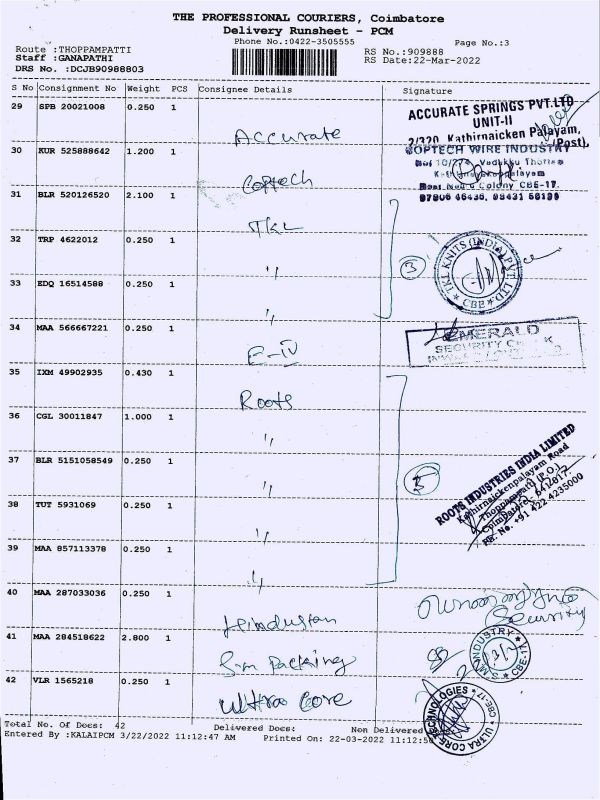 THE PROFESSIONAL COURIERS, Coimbatore
Delivery Runsheet - PCM
Phone No.:0422-3505555
Page No.:3
Route :THOPPAMPATTI
RS No.:909888
Staff :GANAPATHI
RS Date:22-Mar-2022
DRS No. :DCJB90988803
S No Consignment No Weight PCS Consignee Details Signature
29 SPB 20021008 0.250 1 Accurate
ACCURATE SPRINGS PVT.LTD
UNIT-II
2/320, Kathirnaicken Palayam,
(Post),
30 KUR 525888642 1.200 1 Coptech
COPTECH WIRE INDUSTRY
Colony CBE-17.
31 BLR 520126520 2.100 1 TKL
32 TRP 4622012 0.250 1 "
3
TKL KNITS (INDIA) PVT LTD
CBE
33 EDQ 16514588 0.250 1 "
34 MAA 566667221 0.250 1 E-IV
EMERALD
SECURITY
35 IXM 49902935 0.430 1 Roots
36 CGL 30011847 1.000 1 "
37 BLR 5151058549 0.250 1 "
5
ROOTS INDUSTRIES INDIA LIMITED
Kathirnaickenpalayam Road
Thoppampatti (P.O.)
Coimbatore, 641017.
PH. No. +91 422 4235000
38 TUT 5931069 0.250 1 "
39 MAA 857113378 0.250 1 "
40 MAA 287033036 0.250 1 Hindustan
Security
41 MAA 284518622 2.800 1 Sm Packing
INDUSTRY
CBE-17
42 VLR 1565218 0.250 1 Ultra Core
ULTRA CORE TECHNOLOGIES
CBE-17
Total No. Of Docs: 42 Delivered Docs: Non Delivered
Entered By :KALAIPCM 3/22/2022 11:12:47 AM Printed On: 22-03-2022 11:12:50